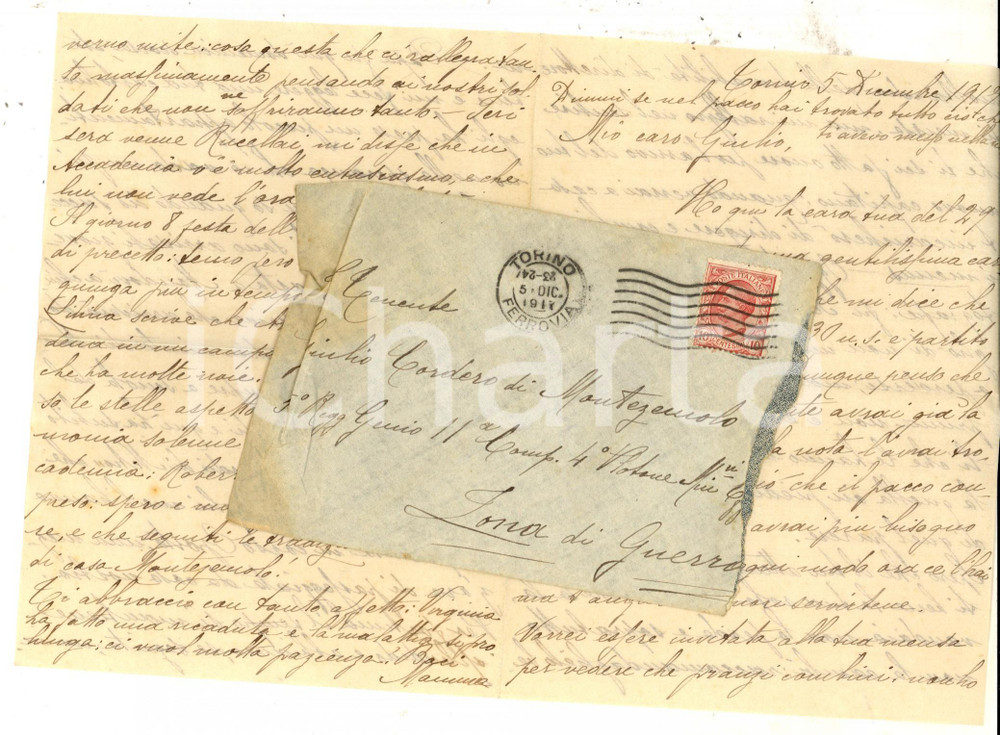 verno mite: cosa questa che ci rallegra tan-
to massimamente pensando ai nostri sol
dati che non ne soffriranno tanto. - Ieri
sera venne Rucellai, mi disse che in
Accademia v'è molto entusiasmo, e che
lui non vede l'ora
Il giorno 8 festa dell
di precetto: temo però
giunga più in tempo
Silvia scrive che
in un campo
che ha molte noie.
le stelle aspetto
monia solenne
cademia: Rober
preso: spero
re, e che seguiti le
di casa Montezemolo!
Ti abbraccio con tanto affetto: Virginia
ha fatto una ricaduta e la malattia si pro
lunga: ci vuol molta pazienza! Baci
Mamma
Torino 5 Dicembre 191
Dimmi se nel pacco hai trovato tutto ciò che
ti avevo messo nella
Mio caro Giulio,
Ho qui la cara tua del 29
gentilissima
che mi dice che
30 u. s. è partito
unque penso che
avrai già la
la nota l'avrai tro-
ciò che il pacco con-
avrai più bisogno
qui modo ora ce l'hai
non servirtene.
Vorrei essere invitata alla tua mensa
per vedere che pranzi combini: non ho
TORINO
23-24
5·DIC.
191
FERROVIA
POSTE ITALIANE
10
Tenente
Giulio Cordero di Montezemolo
5° Regg Genio 11a Comp. 4° Plotone Min
Zona di Guerra
iCharta